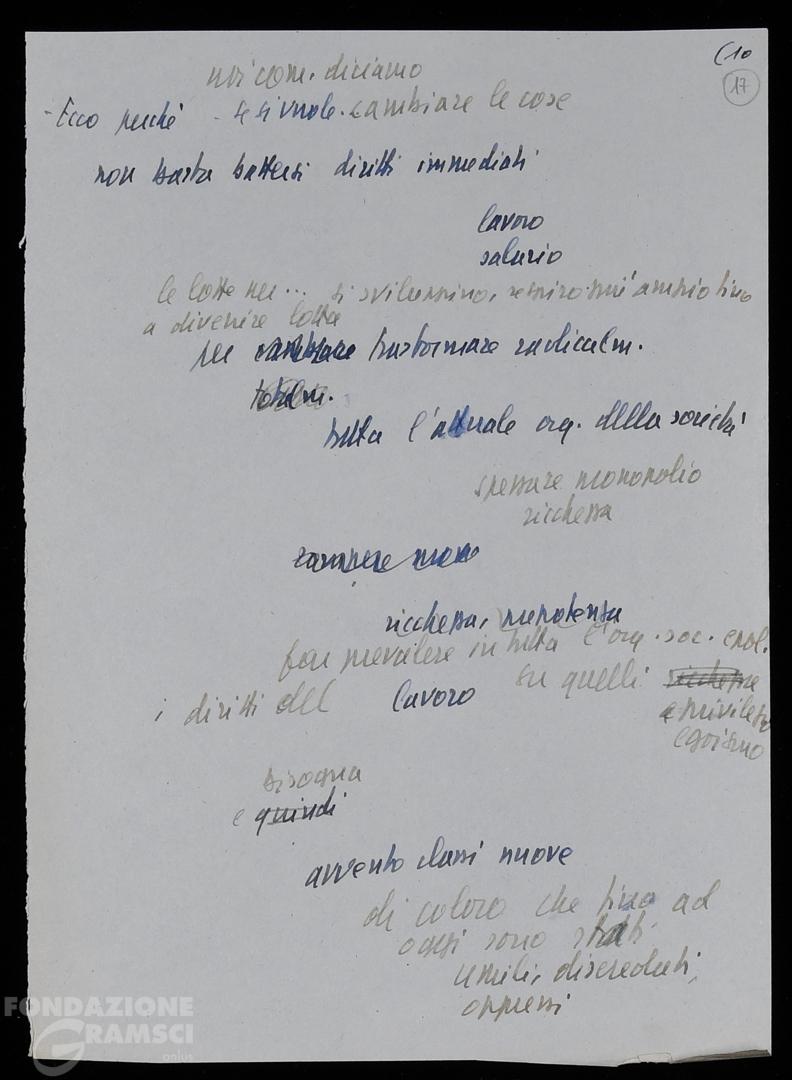 (10
17
noi com. diciamo
- Ecco perché - se si vuole cambiare le cose
non basta battersi diritti immediati
lavoro
salario
le lotte per ... si sviluppino, respiro più ampio fino
a divenire lotta
per cambiare trasformare radicalm.
totalm.
tutta l'attuale org. della società
spezzare monopolio
ricchezza
rompere mono
ricchezza, prepotenza
far prevalere in tutta l'org. soc.
i diritti del lavoro su quelli ricchezza
e privilegio
egoismo
bisogna
e quindi
avvento classi nuove
di coloro che fino ad
oggi sono stati
umili, diseredati,
oppressi
FONDAZIONE
GRAMSCI
onlus